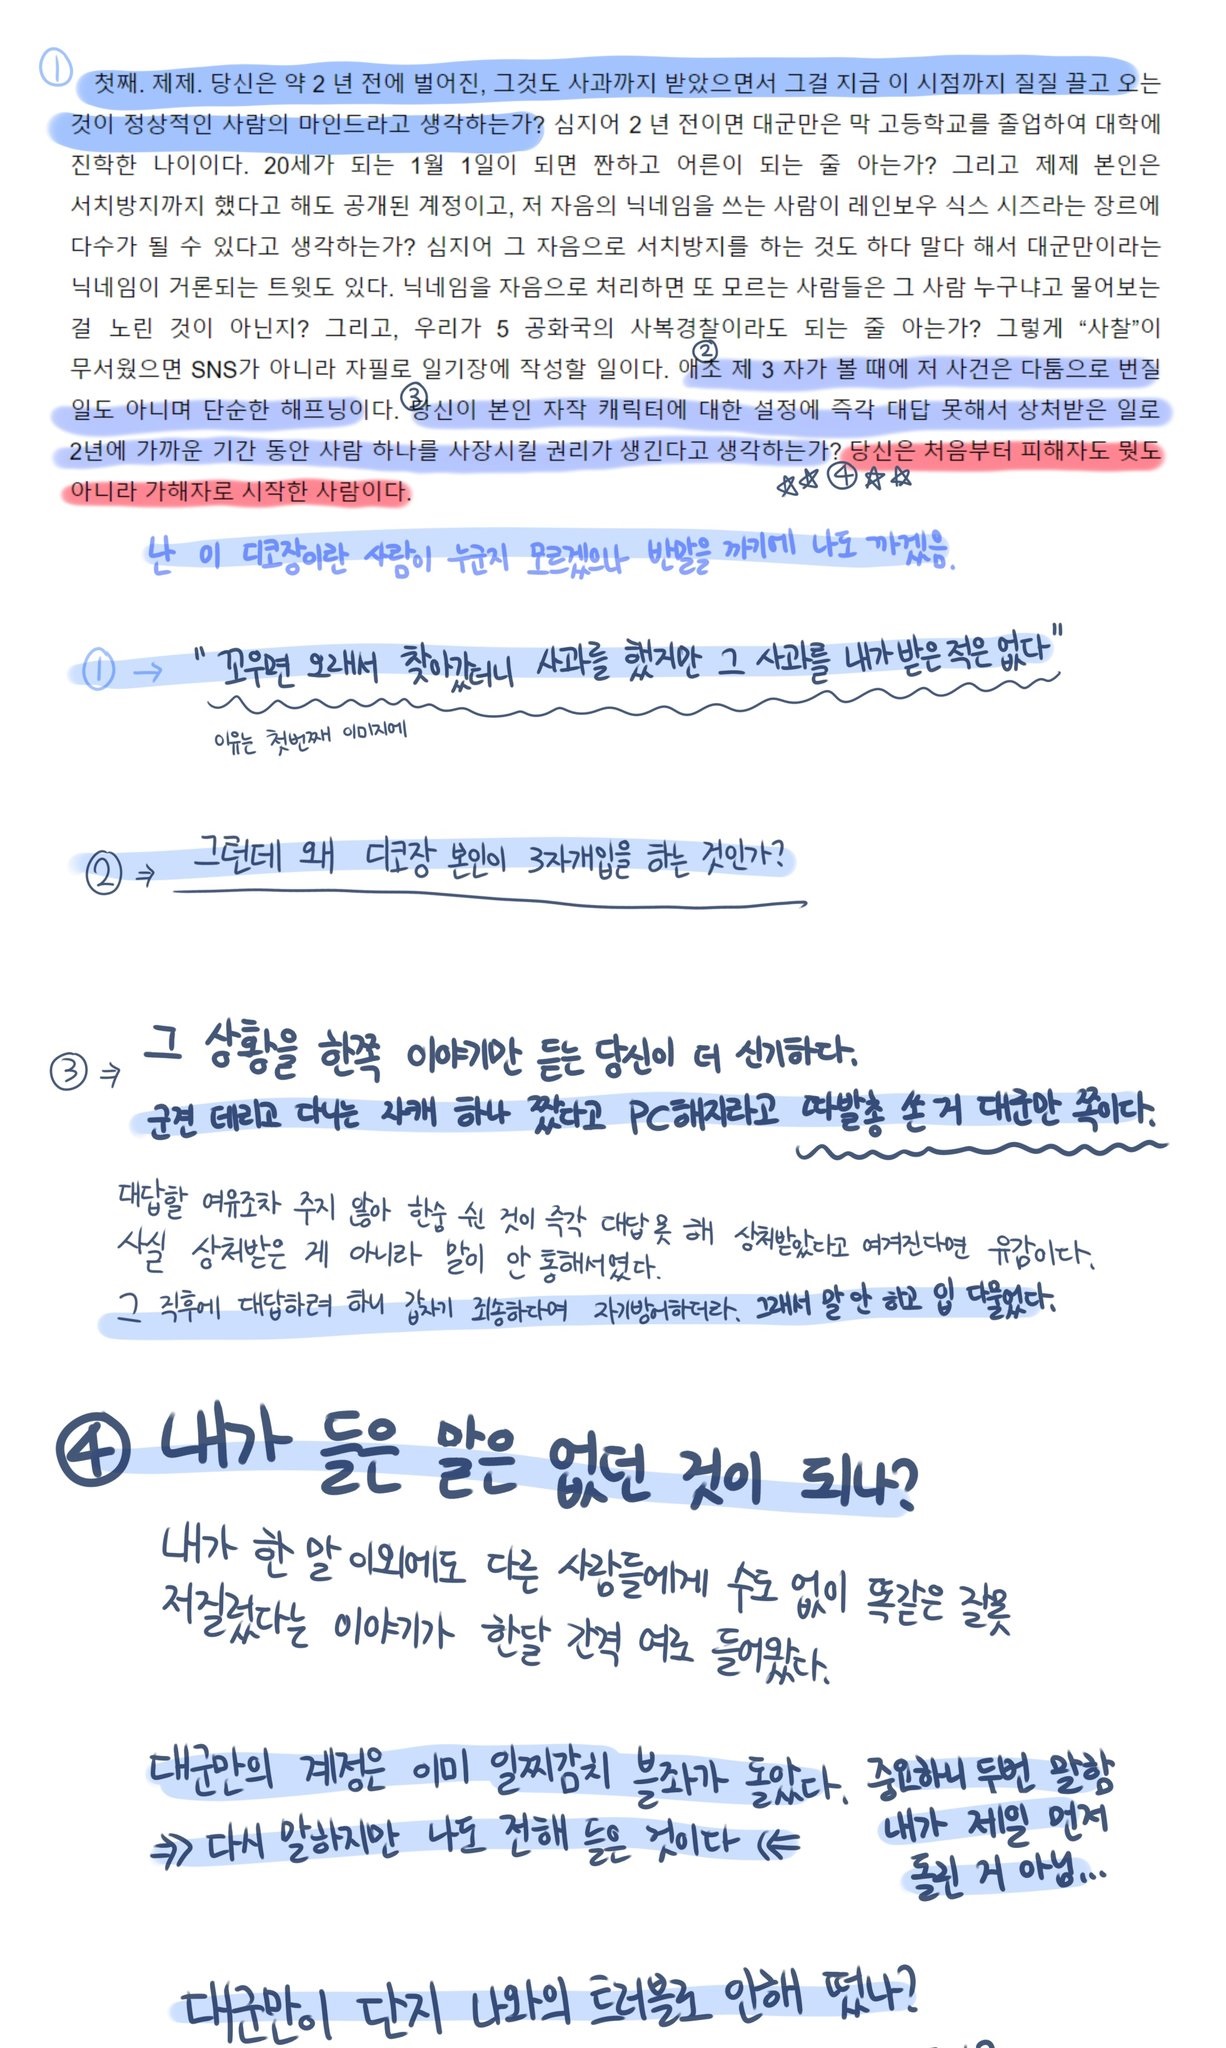 ①
첫째. 제제. 당신은 약 2 년 전에 벌어진, 그것도 사과까지 받았으면서 그걸 지금 이 시점까지 질질 끌고 오는
것이 정상적인 사람의 마인드라고 생각하는가? 심지어 2 년 전이면 대군만은 막 고등학교를 졸업하여 대학에
진학한 나이이다. 20세가 되는 1월 1일이 되면 짠하고 어른이 되는 줄 아는가? 그리고 제제 본인은
서치방지까지 했다고 해도 공개된 계정이고, 저 자음의 닉네임을 쓰는 사람이 레인보우 식스 시즈라는 장르에
다수가 될 수 있다고 생각하는가? 심지어 그 자음으로 서치방지를 하는 것도 하다 말다 해서 대군만이라는
닉네임이 거론되는 트윗도 있다. 닉네임을 자음으로 처리하면 또 모르는 사람들은 그 사람 누구냐고 물어보는
걸 노린 것이 아닌지? 그리고, 우리가 5 공화국의 사복경찰이라도 되는 줄 아는가? 그렇게 “사찰”이
②
무서웠으면 SNS가 아니라 자필로 일기장에 작성할 일이다. 애초 제 3 자가 볼 때에 저 사건은 다툼으로 번질
③
일도 아니며 단순한 해프닝이다. 당신이 본인 자작 캐릭터에 대한 설정에 즉각 대답 못해서 상처받은 일로
2년에 가까운 기간 동안 사람 하나를 사장시킬 권리가 생긴다고 생각하는가? 당신은 처음부터 피해자도 뭣도
아니라 가해자로 시작한 사람이다.
☆☆④☆☆
난 이 디코장이란 사람이 누군지 모르겠으나 반말을 까기에 나도 까겠음.
① → "꼬우면 오래서 찾아갔더니 사과를 했지만 그 사과를 내가 받은 적은 없다"
이유는 첫번째 이미지에
② ⇒ 그런데 왜 디코장 본인이 3자개입을 하는 것인가?
③ ⇒ 그 상황을 한쪽 이야기만 듣는 당신이 더 신기하다.
군견 데리고 다니는 자캐 하나 짰다고 PC해지라고 따발총 쏜 거 대군만 쪽이다.
대답할 여유조차 주지 않아 한숨 쉰 것이 즉각 대답 못 해 상처받았다고 여겨진다면 유감이다.
사실 상처받은 게 아니라 말이 안 통해서였다.
그 직후에 대답하려 하니 갑자기 죄송하다며 자기방어하더라. 그래서 말 안 하고 입 다물었다.
④ 내가 들은 말은 없던 것이 되나?
내가 한 말 이외에도 다른 사람들에게 수도 없이 똑같은 잘못
저질렀다는 이야기가 한달 간격 여로 들어왔다.
대군만의 계정은 이미 일찌감치 블좌가 돌았다.
⇛ 다시 말하지만 나도 전해 들은 것이다 ⇚
중요하니 두번 말함
내가 제일 먼저
돌린 거 아님...
대군만이 단지 나와의 트러블로 안해 떴나?